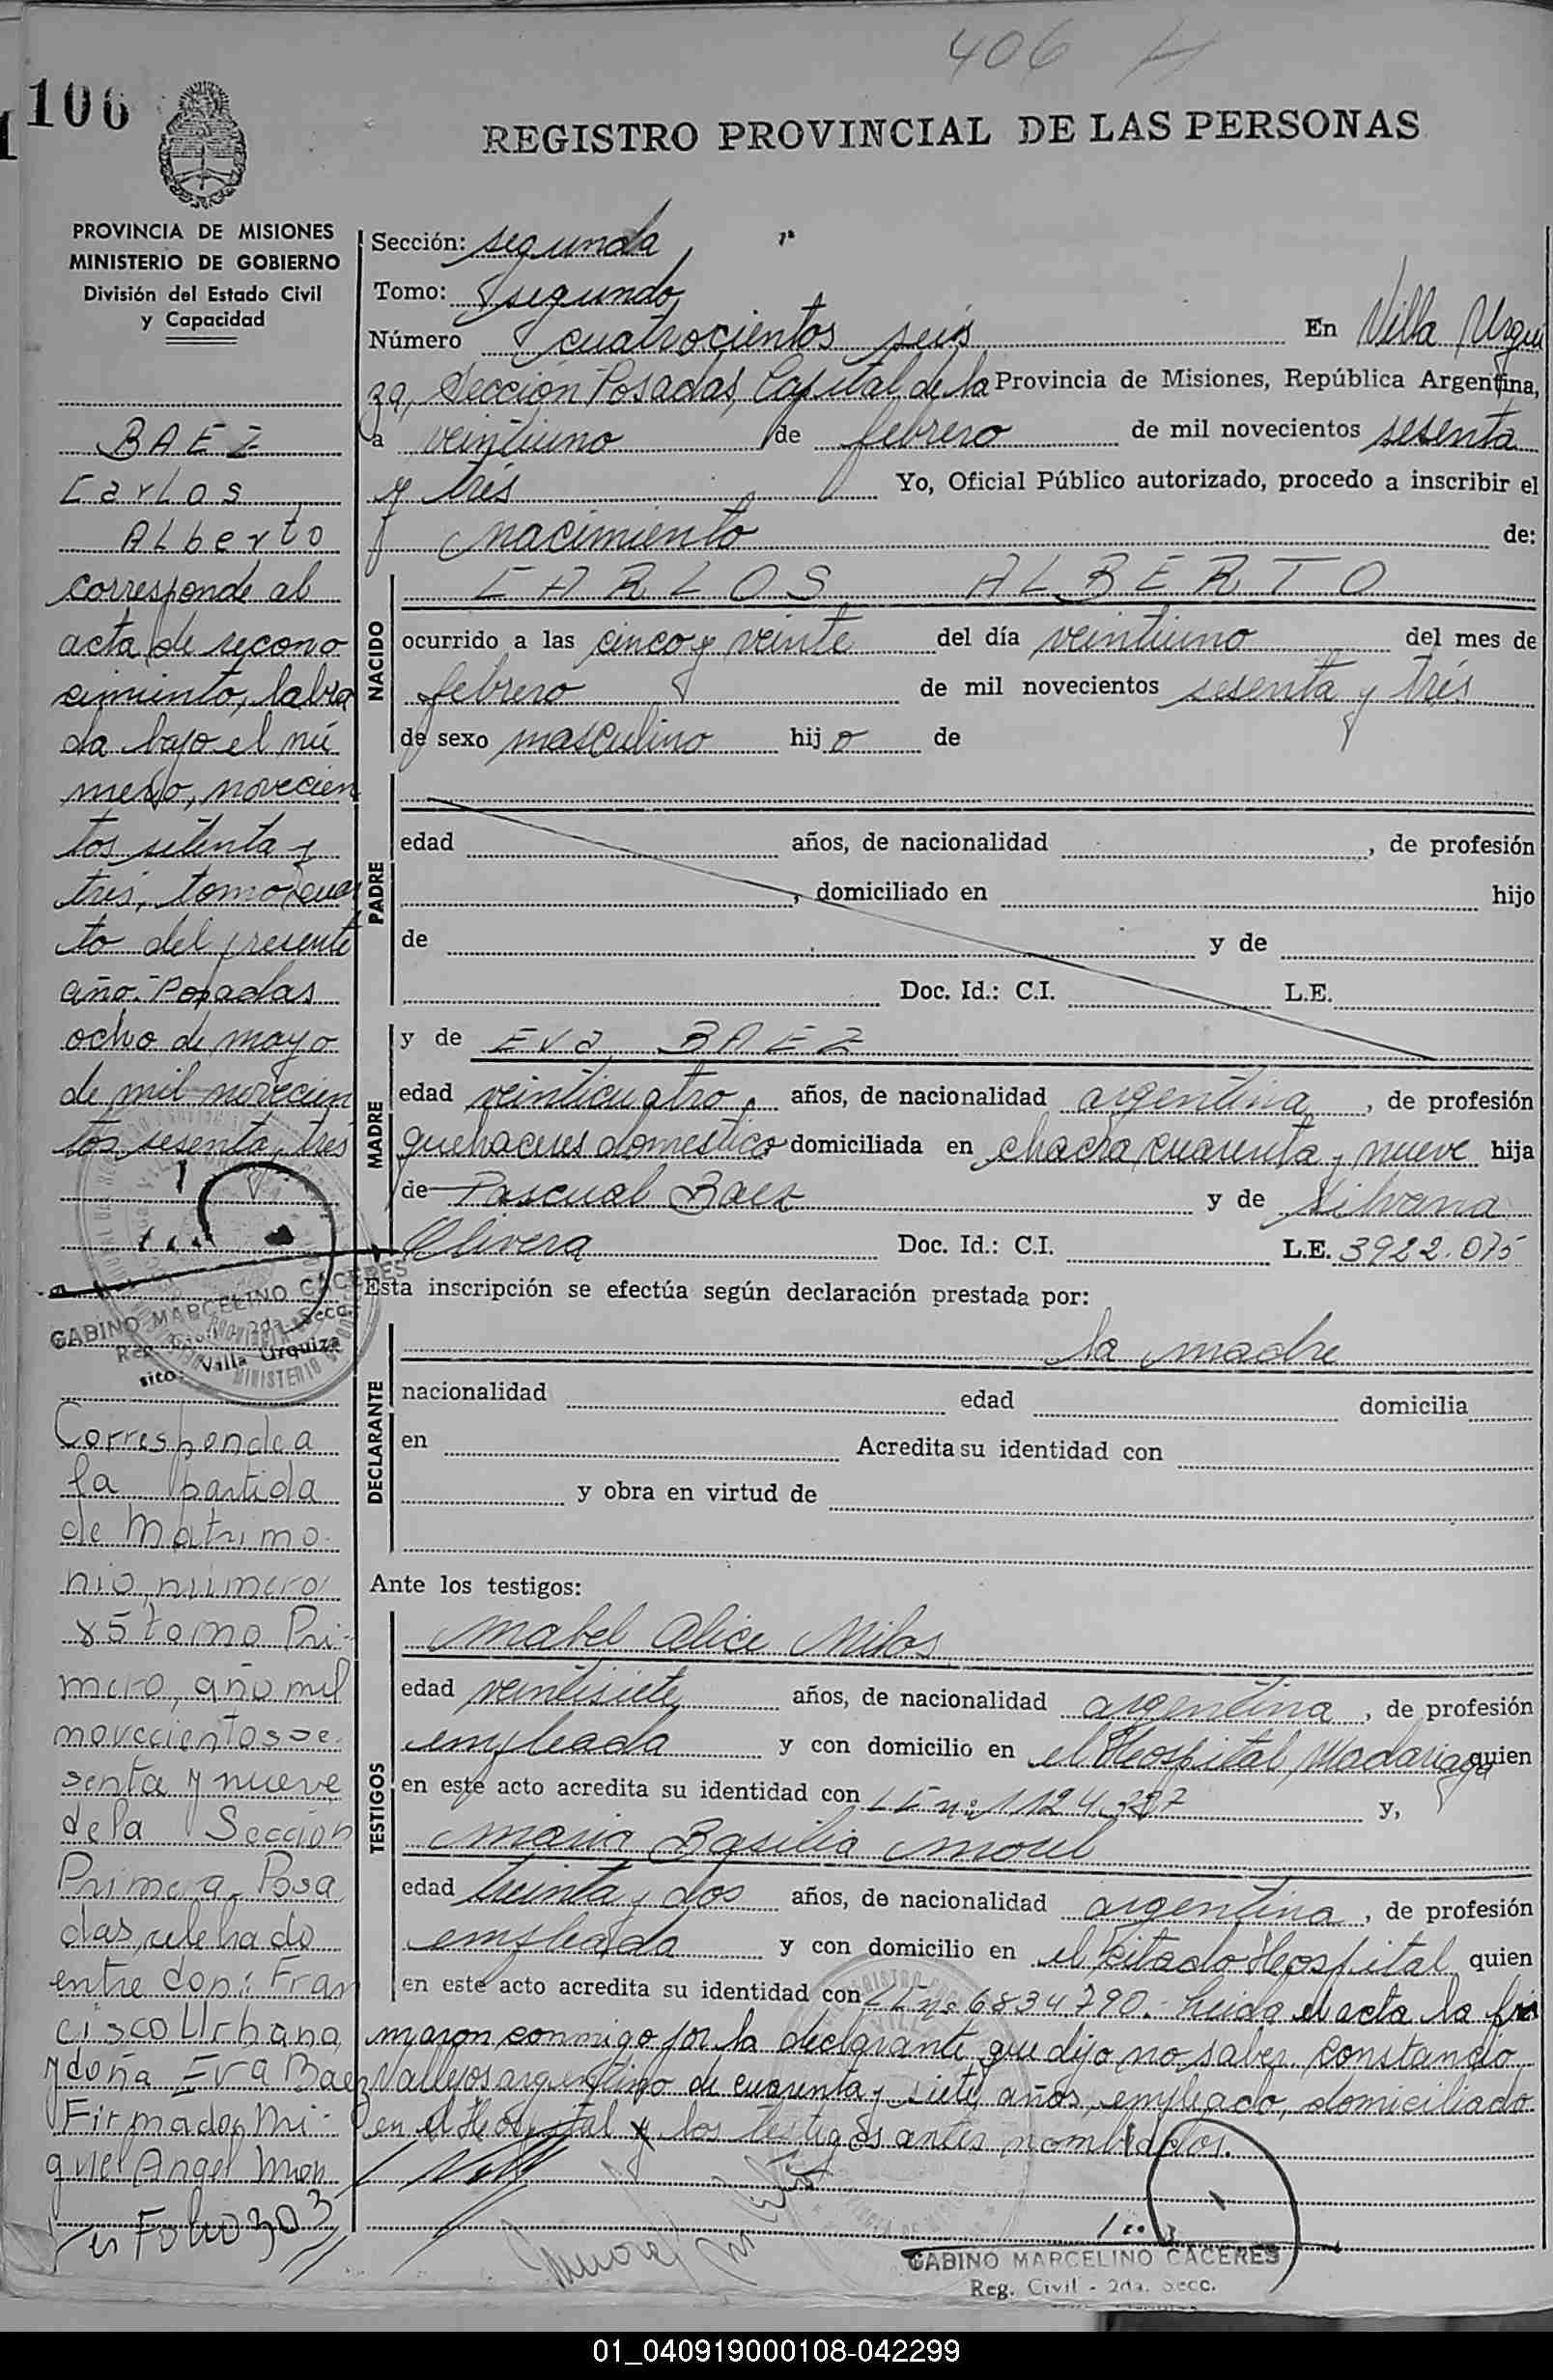 406
106
REGISTRO PROVINCIAL DE LAS PERSONAS
PROVINCIA DE MISIONES
MINISTERIO DE GOBIERNO
División del Estado Civil
y Capacidad
BAEZ
Carlos
Alberto
corresponde al
acta de recono
cimiento, labra
da bajo el nú
mero, novecien
tos setenta y
tres, tomo cuar
to del presente
año.- Posadas
ocho de mayo
de mil novecien
tos sesenta y tres
GABINO MARCELINO CACERES
Reg. Civil 2da. Secc.
sito: Villa Urquiza
Corresponde a
la partida
de Matrimo-
nio, número
85 tomo Pri-
mero, año mil
novecientos se-
senta y nueve
de la Sección
Primera Posa
das, celebrado
entre don: Fran
cisco Urbano
y doña Eva Baez
Firmado, Mi-
guel Angel
en Folio 303
Sección: segunda
Tomo: segundo
Número cuatrocientos seis En Villa Urqui
za, Sección Posadas, Capital de la Provincia de Misiones, República Argentina,
a veintiuno de febrero de mil novecientos sesenta
y tres Yo, Oficial Público autorizado, procedo a inscribir el
nacimiento de:
NACIDO
CARLOS ALBERTO
ocurrido a las cinco y veinte del día veintiuno del mes de
febrero de mil novecientos sesenta y tres
de sexo masculino hijo de
PADRE
edad años, de nacionalidad , de profesión
, domiciliado en hijo
de y de
Doc. Id.: C.I. L.E.
MADRE
y de Eva BAEZ
edad veinticuatro años, de nacionalidad argentina, de profesión
quehaceres domestico domiciliada en chacra cuarenta y nueve hija
de Pascual Baez y de Silvana
Olivera Doc. Id.: C.I. L.E. 3922.075
Esta inscripción se efectúa según declaración prestada por:
DECLARANTE
la madre
nacionalidad edad domicilia
en Acredita su identidad con
y obra en virtud de
Ante los testigos:
TESTIGOS
Mabel Alice Milos
edad veintisiete años, de nacionalidad argentina, de profesión
empleada y con domicilio en el Hospital Madariaga quien
en este acto acredita su identidad con LE nº 1124.387 y,
Maria Basilia Morel
edad treinta y dos años, de nacionalidad argentina, de profesión
empleada y con domicilio en el citado Hospital quien
en este acto acredita su identidad con LE nº 6834790.- Leida el acta la fir
maron conmigo por la declarante que dijo no saber Constancio
Vallejos argentino de cuarenta y siete años, empleado, domiciliado
en el Hospital y los testigos antes nombrados.
GABINO MARCELINO CACERES
Reg. Civil - 2da. Secc.
01_040919000108-042299